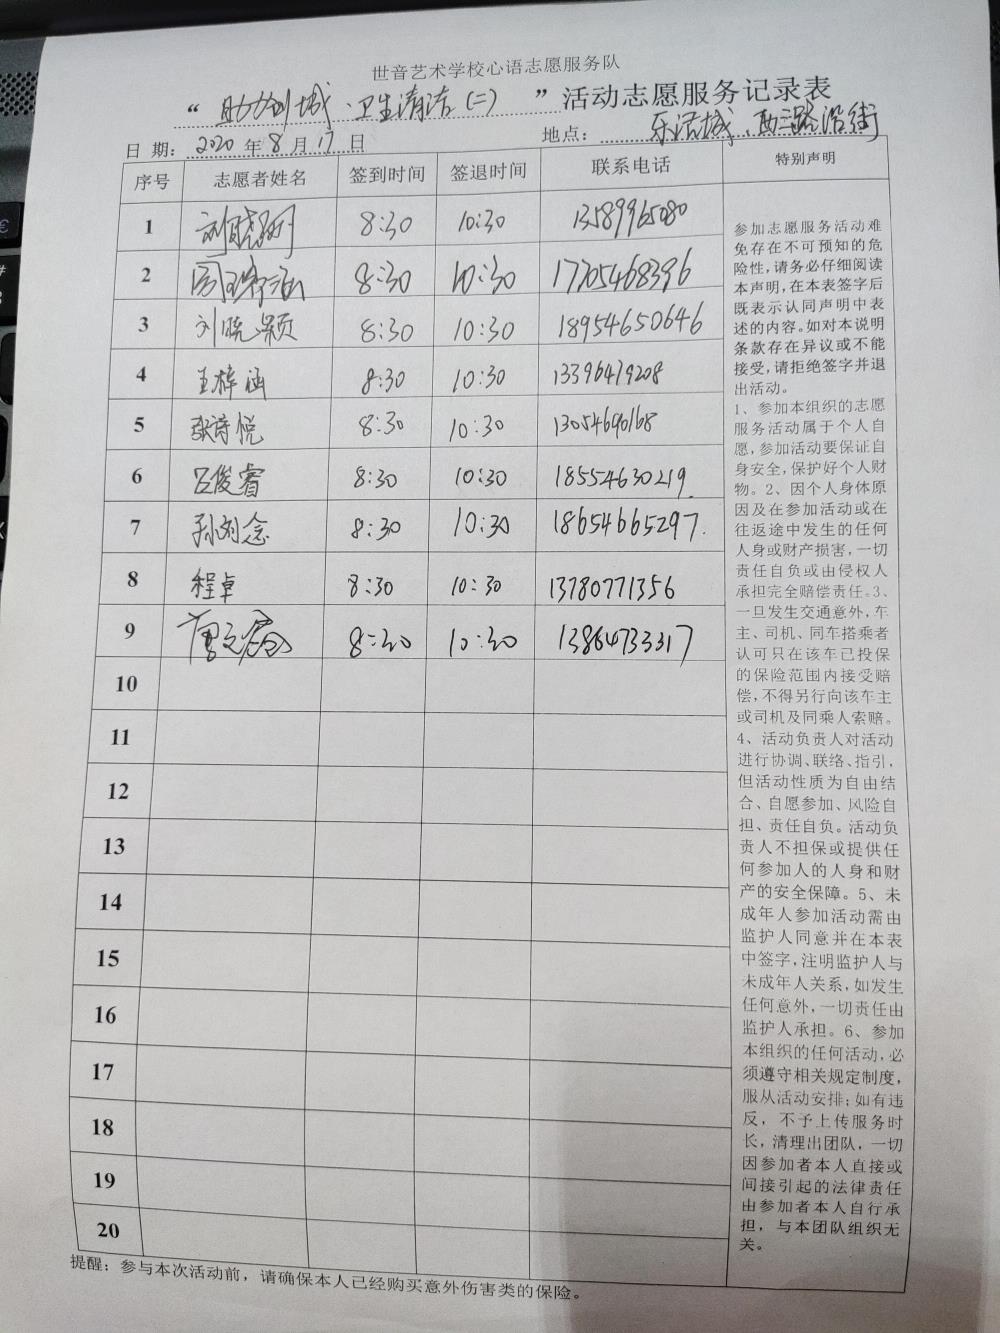 世音艺术学校心语志愿服务队
“助力创城·卫生清洁(二)”活动志愿服务记录表
日 期: 2020 年 8 月 17 日 地点: 乐活城、西三路沿街
序号 志愿者姓名 签到时间 签退时间 联系电话 特别声明
1 8:30 10:30 13589965080
2 8:30 10:30 17705468396
3 刘晓灏 8:30 10:30 18954650646
4 王梓涵 8:30 10:30 13396419208
5 张诗悦 8:30 10:30 13054690168
6 吕俊睿 8:30 10:30 18554630219
7 孙刘念 8:30 10:30 18654665297
8 程卓 8:30 10:30 13780771356
9 8:30 10:30 13864733317
10
11
12
13
14
15
16
17
18
19
20
参加志愿服务活动难
免存在不可预知的危
险性,请务必仔细阅读
本声明,在本表签字后
既表示认同声明中表
述的内容。如对本说明
条款存在异议或不能
接受,请拒绝签字并退
出活动。
1、参加本组织的志愿
服务活动属于个人自
愿,参加活动要保证自
身安全,保护好个人财
物。2、因个人身体原
因及在参加活动或在
往返途中发生的任何
人身或财产损害,一切
责任自负或由侵权人
承担完全赔偿责任。3、
一旦发生交通意外,车
主、司机、同车搭乘者
认可只在该车已投保
的保险范围内接受赔
偿,不得另行向该车主
或司机及同乘人索赔。
4、活动负责人对活动
进行协调、联络、指引,
但活动性质为自由结
合、自愿参加、风险自
担、责任自负。活动负
责人不担保或提供任
何参加人的人身和财
产的安全保障。5、未
成年人参加活动需由
监护人同意并在本表
中签字,注明监护人与
未成年人关系,如发生
任何意外,一切责任由
监护人承担。6、参加
本组织的任何活动,必
须遵守相关规定制度,
服从活动安排;如有违
反,不予上传服务时
长,清理出团队,一切
因参加者本人直接或
间接引起的法律责任
由参加者本人自行承
担,与本团队组织无
关。
提醒:参与本次活动前,请确保本人已经购买意外伤害类的保险。